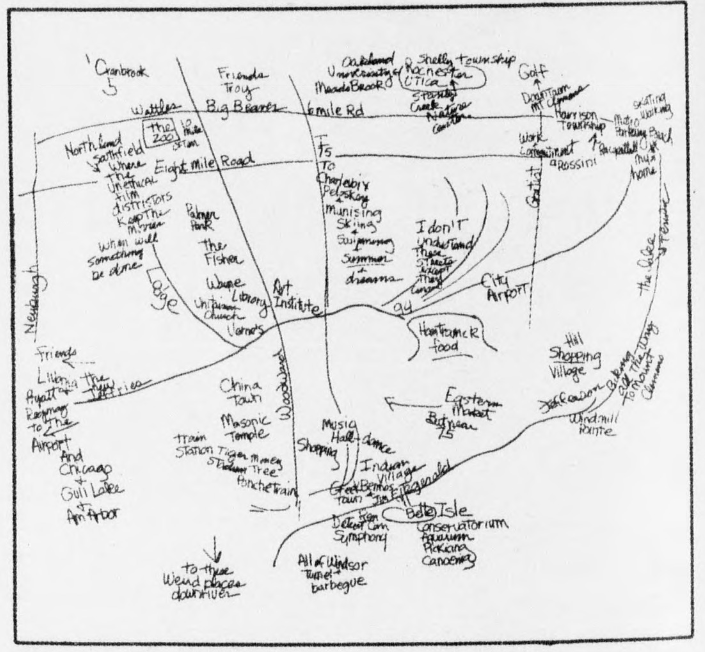 Cranbrook
Friends
Troy
Oakland
University of
MeadowBrook
Shelly Township
Rochester
Utica
Stoney
Creek
Nature
Center
Golf
Downtown
Mt Clemens
Harrison
Township
skating
Metro
Beach
my
home
Wattles
Big Beaver
16 mile Rd
North and
Southfield
Where
The
Unethical
film
distristors
Keep The
Movies
when will
something
be done
The
Zoo
10
Mile
Eight Mile Road
I
75
TO
Charlevoix
Petoskey
+
Munising
Skiing
+
Swimming
Summer
+
dreams
Work
Rossini
Gratiot
Palmer
Park
The
Fisher
I don't
understand
These
streets
except
They
Newburgh
Wayne
Library
Unitarian
Church
Verne's
Art
Institute
94
City
Airport
the lake
Hamtramck
food
Friends
Hyatt
The
To The
Airport
And
Chicago
+
Gull Lake
+
Ann Arbor
Woodward
China
Town
Masonic
Temple
Train
Station
Tiger
Stadium
Money
Tree
PoncheTrain
Music
Hall-dance
Shopping
Eastern
Market
But near
75
Hill
Shopping
Village
Jefferson
Biking
all The Way
To Mount
Clemens
Windmill
Pointe
Indian
Village
Greek
Town
Fitzgerald
Symphony
Belle Isle
Conservatorium
Aquarium
Picnicing
Canoeing
All of Windsor
Tunnel +
barbegue
to these
Weird places
downriver